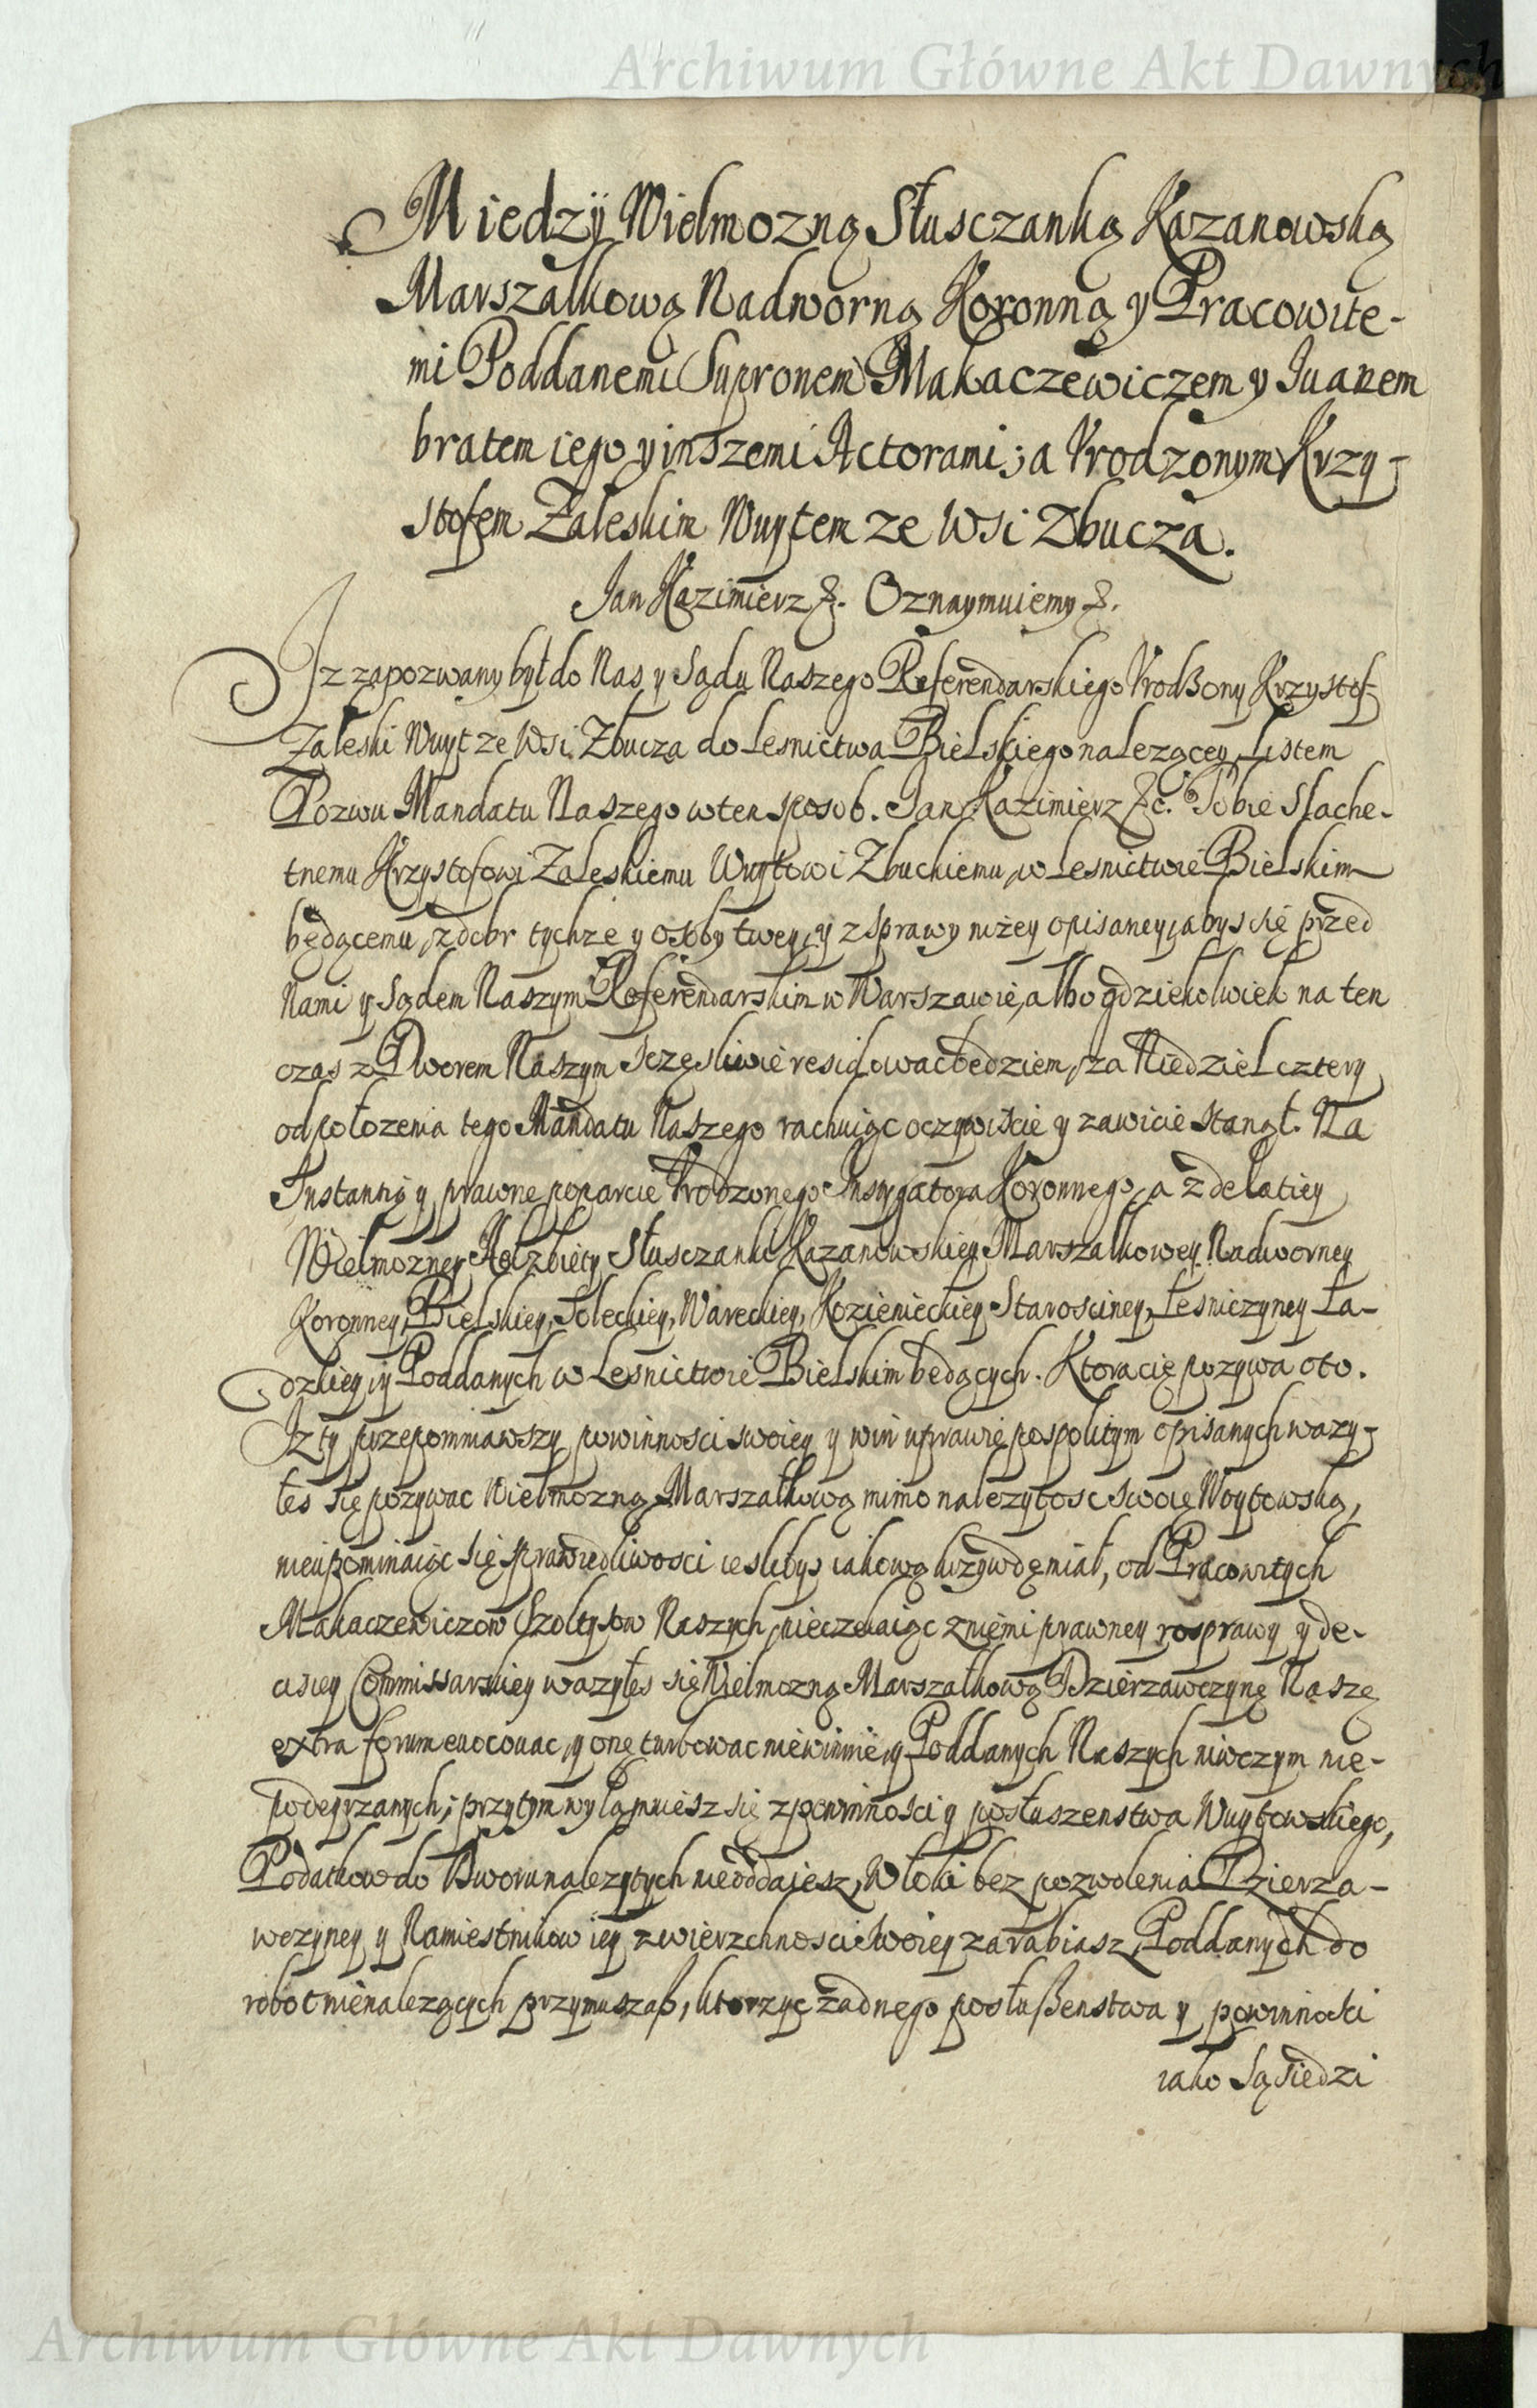 Archiwum Główne Akt Dawnych
Miedzÿ Wielmozną Słusczanką Kazanowską
Marszałkową Nadworną Koronną y Pracowite-
mi Poddanemi Supronem Makaczewiczem y Iwanem
bratem iego y inszemi Actorami; a Vrodzonym Krzy-
stofem Zaleskim Wuytem ze Wsi Zbucza.
Jan Kazimierz &. Oznaymuiemy &.
Iz zapozwany był do Nas y Sądu Naszego Referendarskiego Vrodzony Krzystof
Zaleski Wuyt ze Wsi Zbucza do Lesnictwa Bielskiego nalezącey, Listem
Pozwu Mandatu Naszego w ten sposob. Jan Kazimierz &c. Tobie Slache-
tnemu Krzystofowi Zaleskiemu Wuytowi Zbuckiemu, w Lesnictwie Bielskim
będącemu, z dobr tychze y osoby twey, y z sprawy nizey opisaney, abys się przed
Nami y Sądem Naszym Referendarskim w Warszawie, albo gdziekolwiek na ten
czas z Dworem Naszym sczęsliwie residowac będziem, za Niedziel cztery
od połozenia tego Mandatu Naszego rachuiąc oczywiscie y zawicie stanął. Na
Instantią y prawne poparcie Vrodzonego Instygatora Koronnego, a z delatiey
Wielmozney Helzbiety Słusczanki Kazanowskiey Marszałkowey Nadworney
Koronney, Bielskiey, Soleckiey, Wareckiey, Kozienieckiey Starosciney, Lesniczyney Ła-
dzkiey, y Poddanych w Lesnictwie Bielskim będących. Ktora cię pozywa oto.
Iz ty przepomniawszy powinnosci swoiey y win w prawie pospolitym opisanych wazy-
łes się pozywac Wielmozną Marszałkową mimo nalezytosc swoię Woytowską,
nieupominaiąc się sprawiedliwosci iesliby iakową krzywdę miał, od Pracowitych
Makaczewiczow Szołtysow Naszych, nieczekaiąc z niemi prawney rosprawy y de-
cisiey Commissarskiey wazyłes się Wielmozną Marszałkową Dzierzawczynę Naszę
extra forum euocowac, y onę turbowac niewinnie, y Poddanych Naszych niwczym nie-
podeyrzanych; przytym wyłamuiesz się z powinnosci y posłuszenstwa Wuytowskiego,
Podatkow do Dworu nalezytych nieoddaiesz, Włoki bez pozwolenia Dzierza-
wczyney y Namiestnikow iey zwierzchnosci swoiey zarabiasz, Poddanych do
robot nienalezących przymuszasz, ktorzyc zadnego posłuszenstwa y powinnosci
iako Sąsiedzi
Archiwum Główne Akt Dawnych